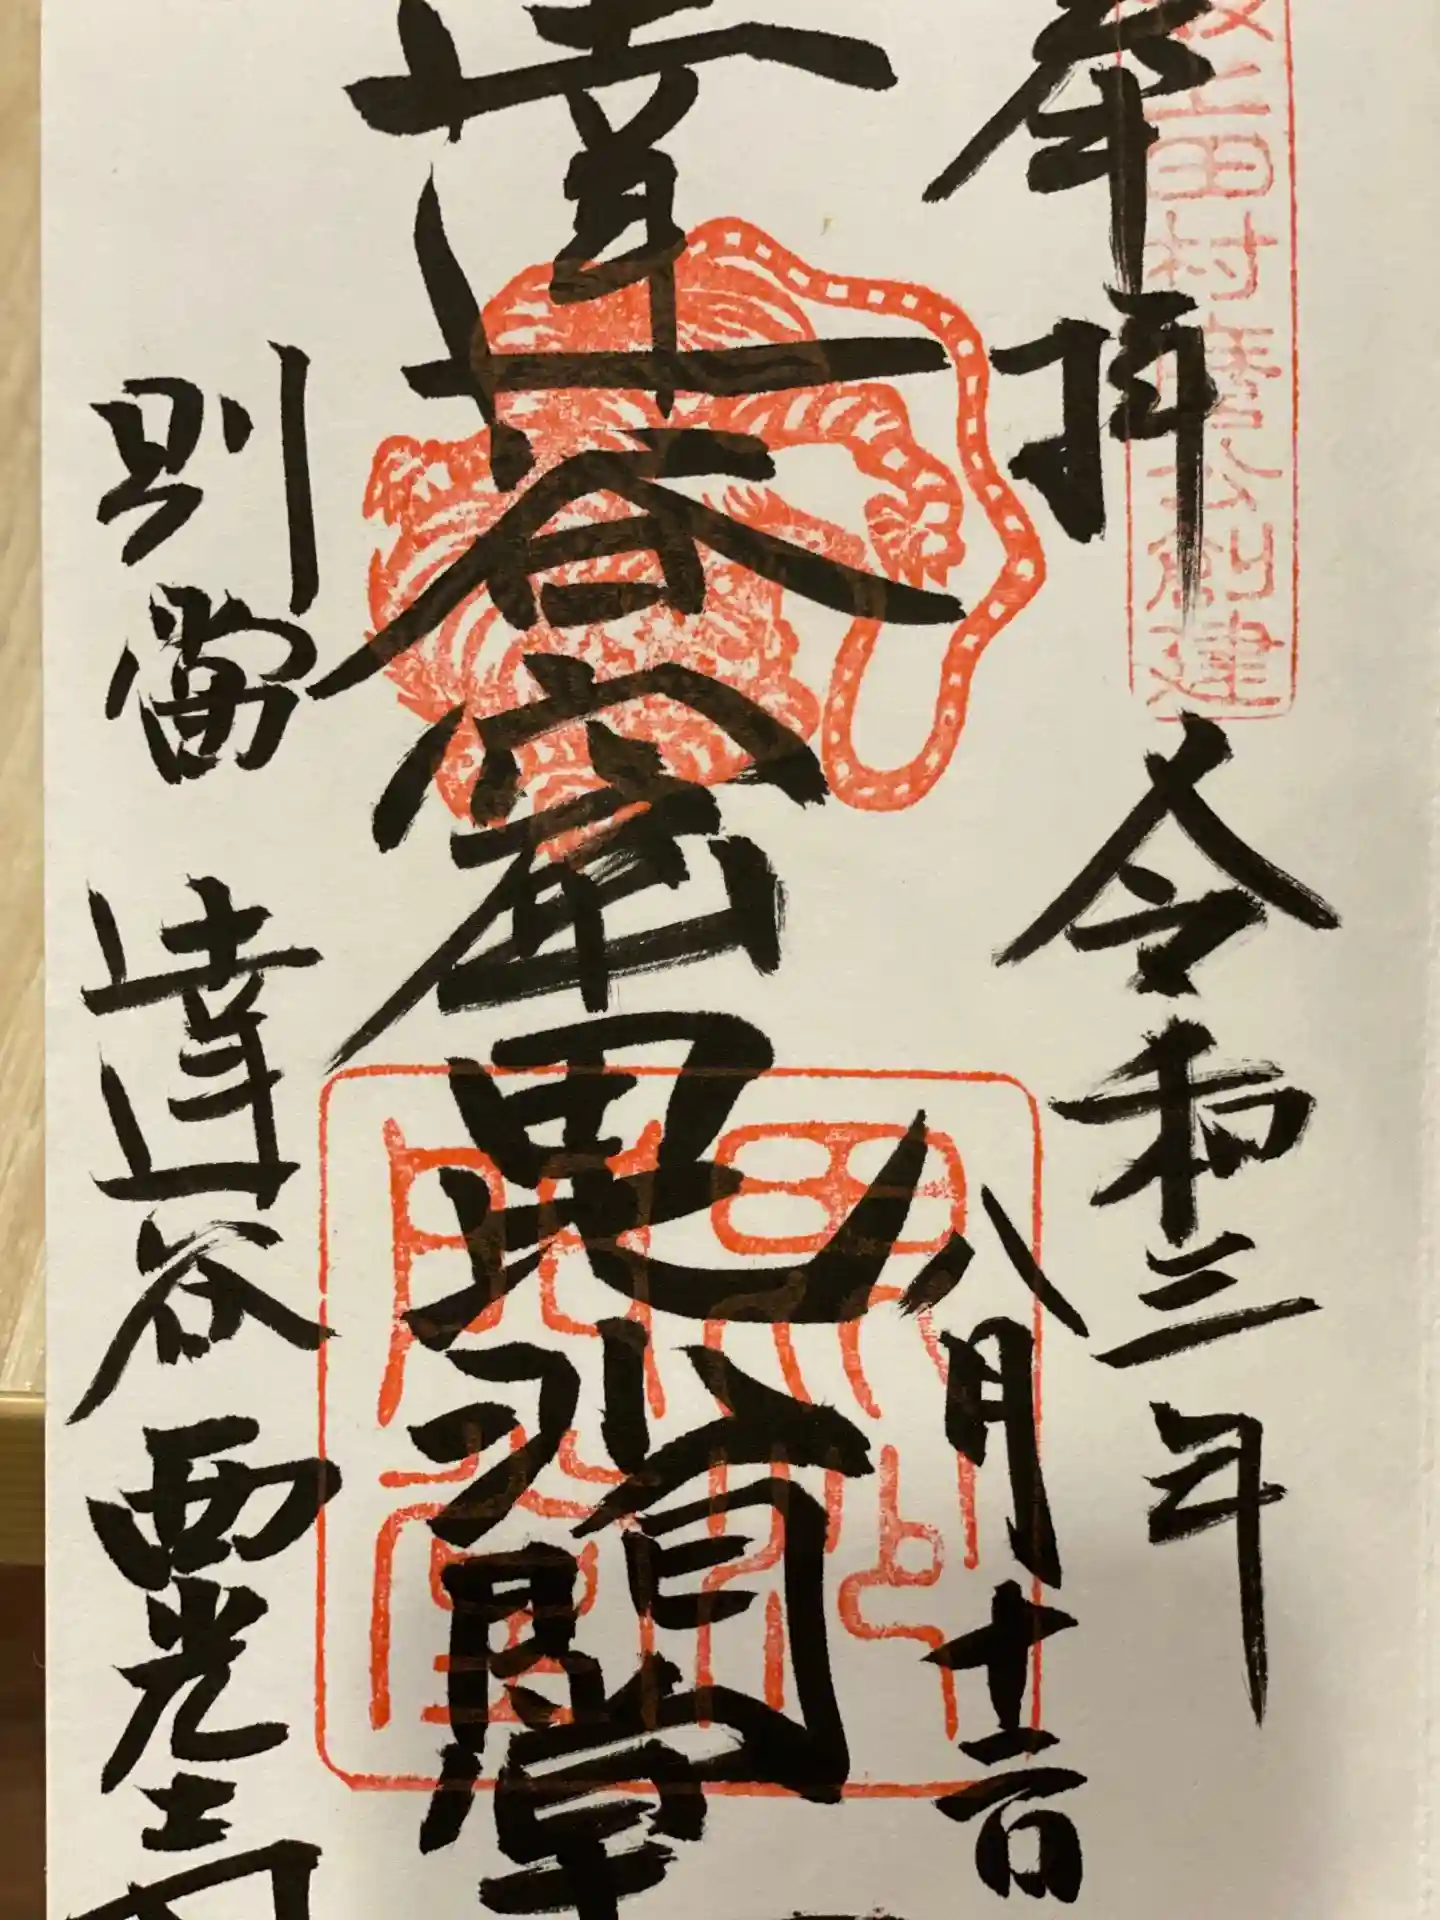 坂上田村麿公創建
奉拝 令和三年
八月十二日
達谷窟毘沙門堂
別當 達谷西光寺